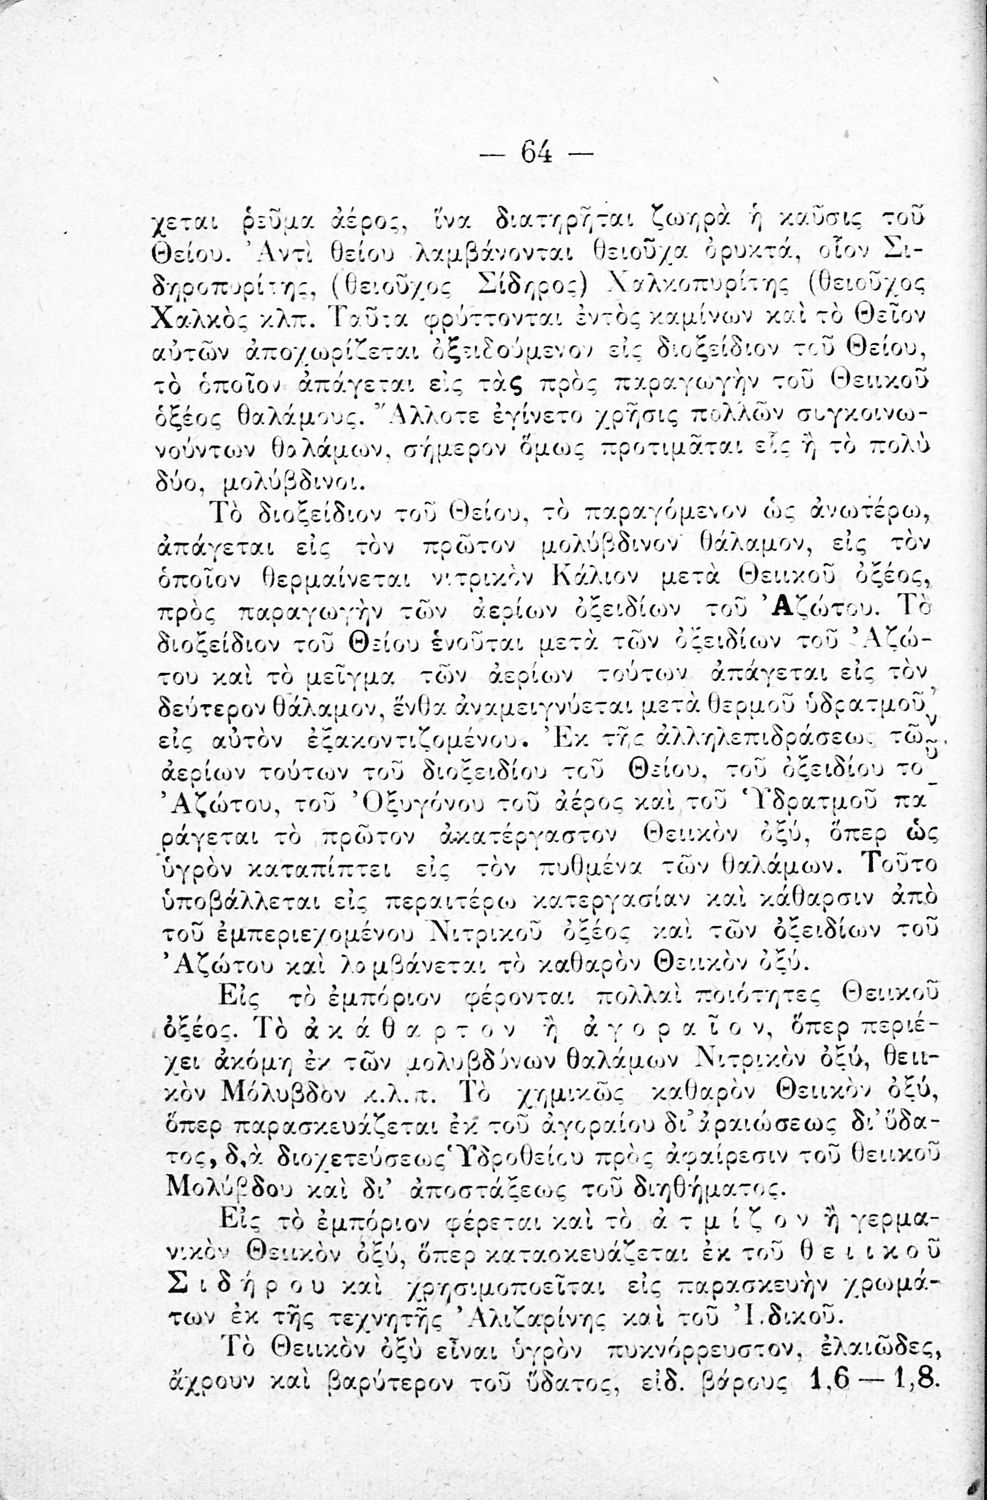 — 64 —
χεται ῥεῦμα ἀέρος, ἵνα διατηρῆται ζωηρὰ ἡ καῦσις τοῦ
Θείου. Ἀντὶ θείου λαμβάνονται θειοῦχα ὀρυκτά, οἷον Σι-
δηροπυρίτης, (θειοῦχος Σίδηρος) Χαλκοπυρίτης (θειοῦχος
Χαλκὸς κλπ. Ταῦτα φρύττονται ἐντὸς καμίνων καὶ τὸ Θεῖον
αὐτῶν ἀποχωρίζεται ὀξειδούμενον εἰς διοξείδιον τοῦ Θείου,
τὸ ὁποῖον ἀπάγεται εἰς τὰς πρὸς παραγωγὴν τοῦ Θειικοῦ
ὀξέος θαλάμους. Ἄλλοτε ἐγίνετο χρῆσις πολλῶν συγκοινω-
νούντων θαλάμων, σήμερον ὅμως προτιμᾶται εἷς ἢ τὸ πολὺ
δύο, μολύβδινοι.
Τὸ διοξείδιον τοῦ Θείου, τὸ παραγόμενον ὡς ἀνωτέρω,
ἀπάγεται εἰς τὸν πρῶτον μολύβδινον θάλαμον, εἰς τὸν
ὁποῖον θερμαίνεται νιτρικὸν Κάλιον μετὰ Θειικοῦ ὀξέος,
πρὸς παραγωγὴν τῶν ἀερίων ὀξειδίων τοῦ Ἀζώτου. Τὸ
διοξείδιον τοῦ Θείου ἑνοῦται μετὰ τῶν ὀξειδίων τοῦ Ἀζώ-
του καὶ τὸ μεῖγμα τῶν ἀερίων τούτων ἀπάγεται εἰς τὸν
δεύτερον θάλαμον, ἔνθα ἀναμειγνύεται μετὰ θερμοῦ ὑδρατμοῦ,
εἰς αὐτὸν ἐξακοντιζομένου. Ἐκ τῆς ἀλληλεπιδράσεως τῶν
ἀερίων τούτων τοῦ διοξειδίου τοῦ Θείου, τοῦ ὀξειδίου τοῦ
Ἀζώτου, τοῦ Ὀξυγόνου τοῦ ἀέρος καὶ τοῦ Ὑδρατμοῦ πα-
ράγεται τὸ πρῶτον ἀκατέργαστον Θειικὸν ὀξύ, ὅπερ ὡς
ὑγρὸν καταπίπτει εἰς τὸν πυθμένα τῶν θαλάμων. Τοῦτο
ὑποβάλλεται εἰς περαιτέρω κατεργασίαν καὶ κάθαρσιν ἀπὸ
τοῦ ἐμπεριεχομένου Νιτρικοῦ ὀξέος καὶ τῶν ὀξειδίων τοῦ
Ἀζώτου καὶ λαμβάνεται τὸ καθαρὸν Θειικὸν ὀξύ.
Εἰς τὸ ἐμπόριον φέρονται πολλαὶ ποιότητες Θειικοῦ
ὀξέος. Τὸ ἀκάθαρτον ἢ ἀγοραῖον, ὅπερ περιέ-
χει ἀκόμη ἐκ τῶν μολυβδίνων θαλάμων Νιτρικὸν ὀξύ, θειι-
κὸν Μόλυβδον κ.λ.π. Τὸ χημικῶς καθαρὸν Θειικὸν ὀξύ,
ὅπερ παρασκευάζεται ἐκ τοῦ ἀγοραίου δι' ἀραιώσεως δι' ὕδα-
τος, διὰ διοχετεύσεως Ὑδροθείου πρὸς ἀφαίρεσιν τοῦ θειικοῦ
Μολύβδου καὶ δι' ἀποστάξεως τοῦ διηθήματος.
Εἰς τὸ ἐμπόριον φέρεται καὶ τὸ ἀτμίζον ἢ γερμα-
νικὸν Θειικὸν ὀξύ, ὅπερ καταοκευάζεται ἐκ τοῦ θειικοῦ
Σιδήρου καὶ χρησιμοποεῖται εἰς παρασκευὴν χρωμά-
των ἐκ τῆς τεχνητῆς Ἀλιζαρίνης καὶ τοῦ Ἰνδικοῦ.
Τὸ Θειικὸν ὀξὺ εἶναι ὑγρὸν πυκνόρρευστον, ἐλαιῶδες,
ἄχρουν καὶ βαρύτερον τοῦ ὕδατος, εἰδ. βάρους 1,6 — 1,8.